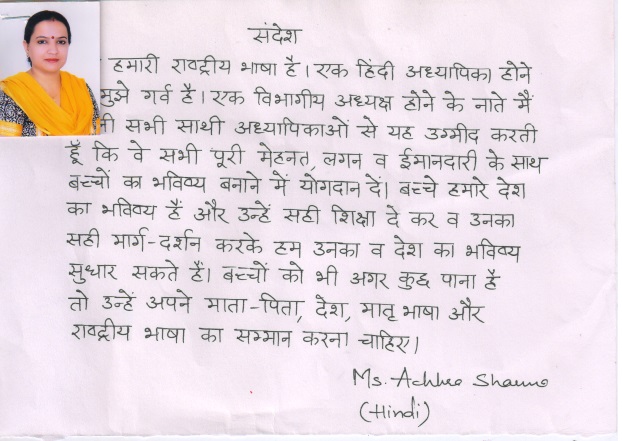 संदेश
हमारी राष्ट्रीय भाषा है। एक हिंदी अध्यापिका होने
मुझे गर्व है। एक विभागीय अध्यक्ष होने के नाते मैं
सभी साथी अध्यापिकाओं से यह उम्मीद करती
हूँ कि वे सभी पूरी मेहनत, लगन व ईमानदारी के साथ
बच्चों का भविष्य बनाने में योगदान दें। बच्चे हमारे देश
का भविष्य हैं और उन्हें सही शिक्षा दे कर व उनका
सही मार्ग-दर्शन करके हम उनका व देश का भविष्य
सुधार सकते हैं। बच्चों को भी अगर कुछ पाना है
तो उन्हें अपने माता-पिता, देश, मातृ भाषा और
राष्ट्रीय भाषा का सम्मान करना चाहिए।
Ms.
(Hindi)